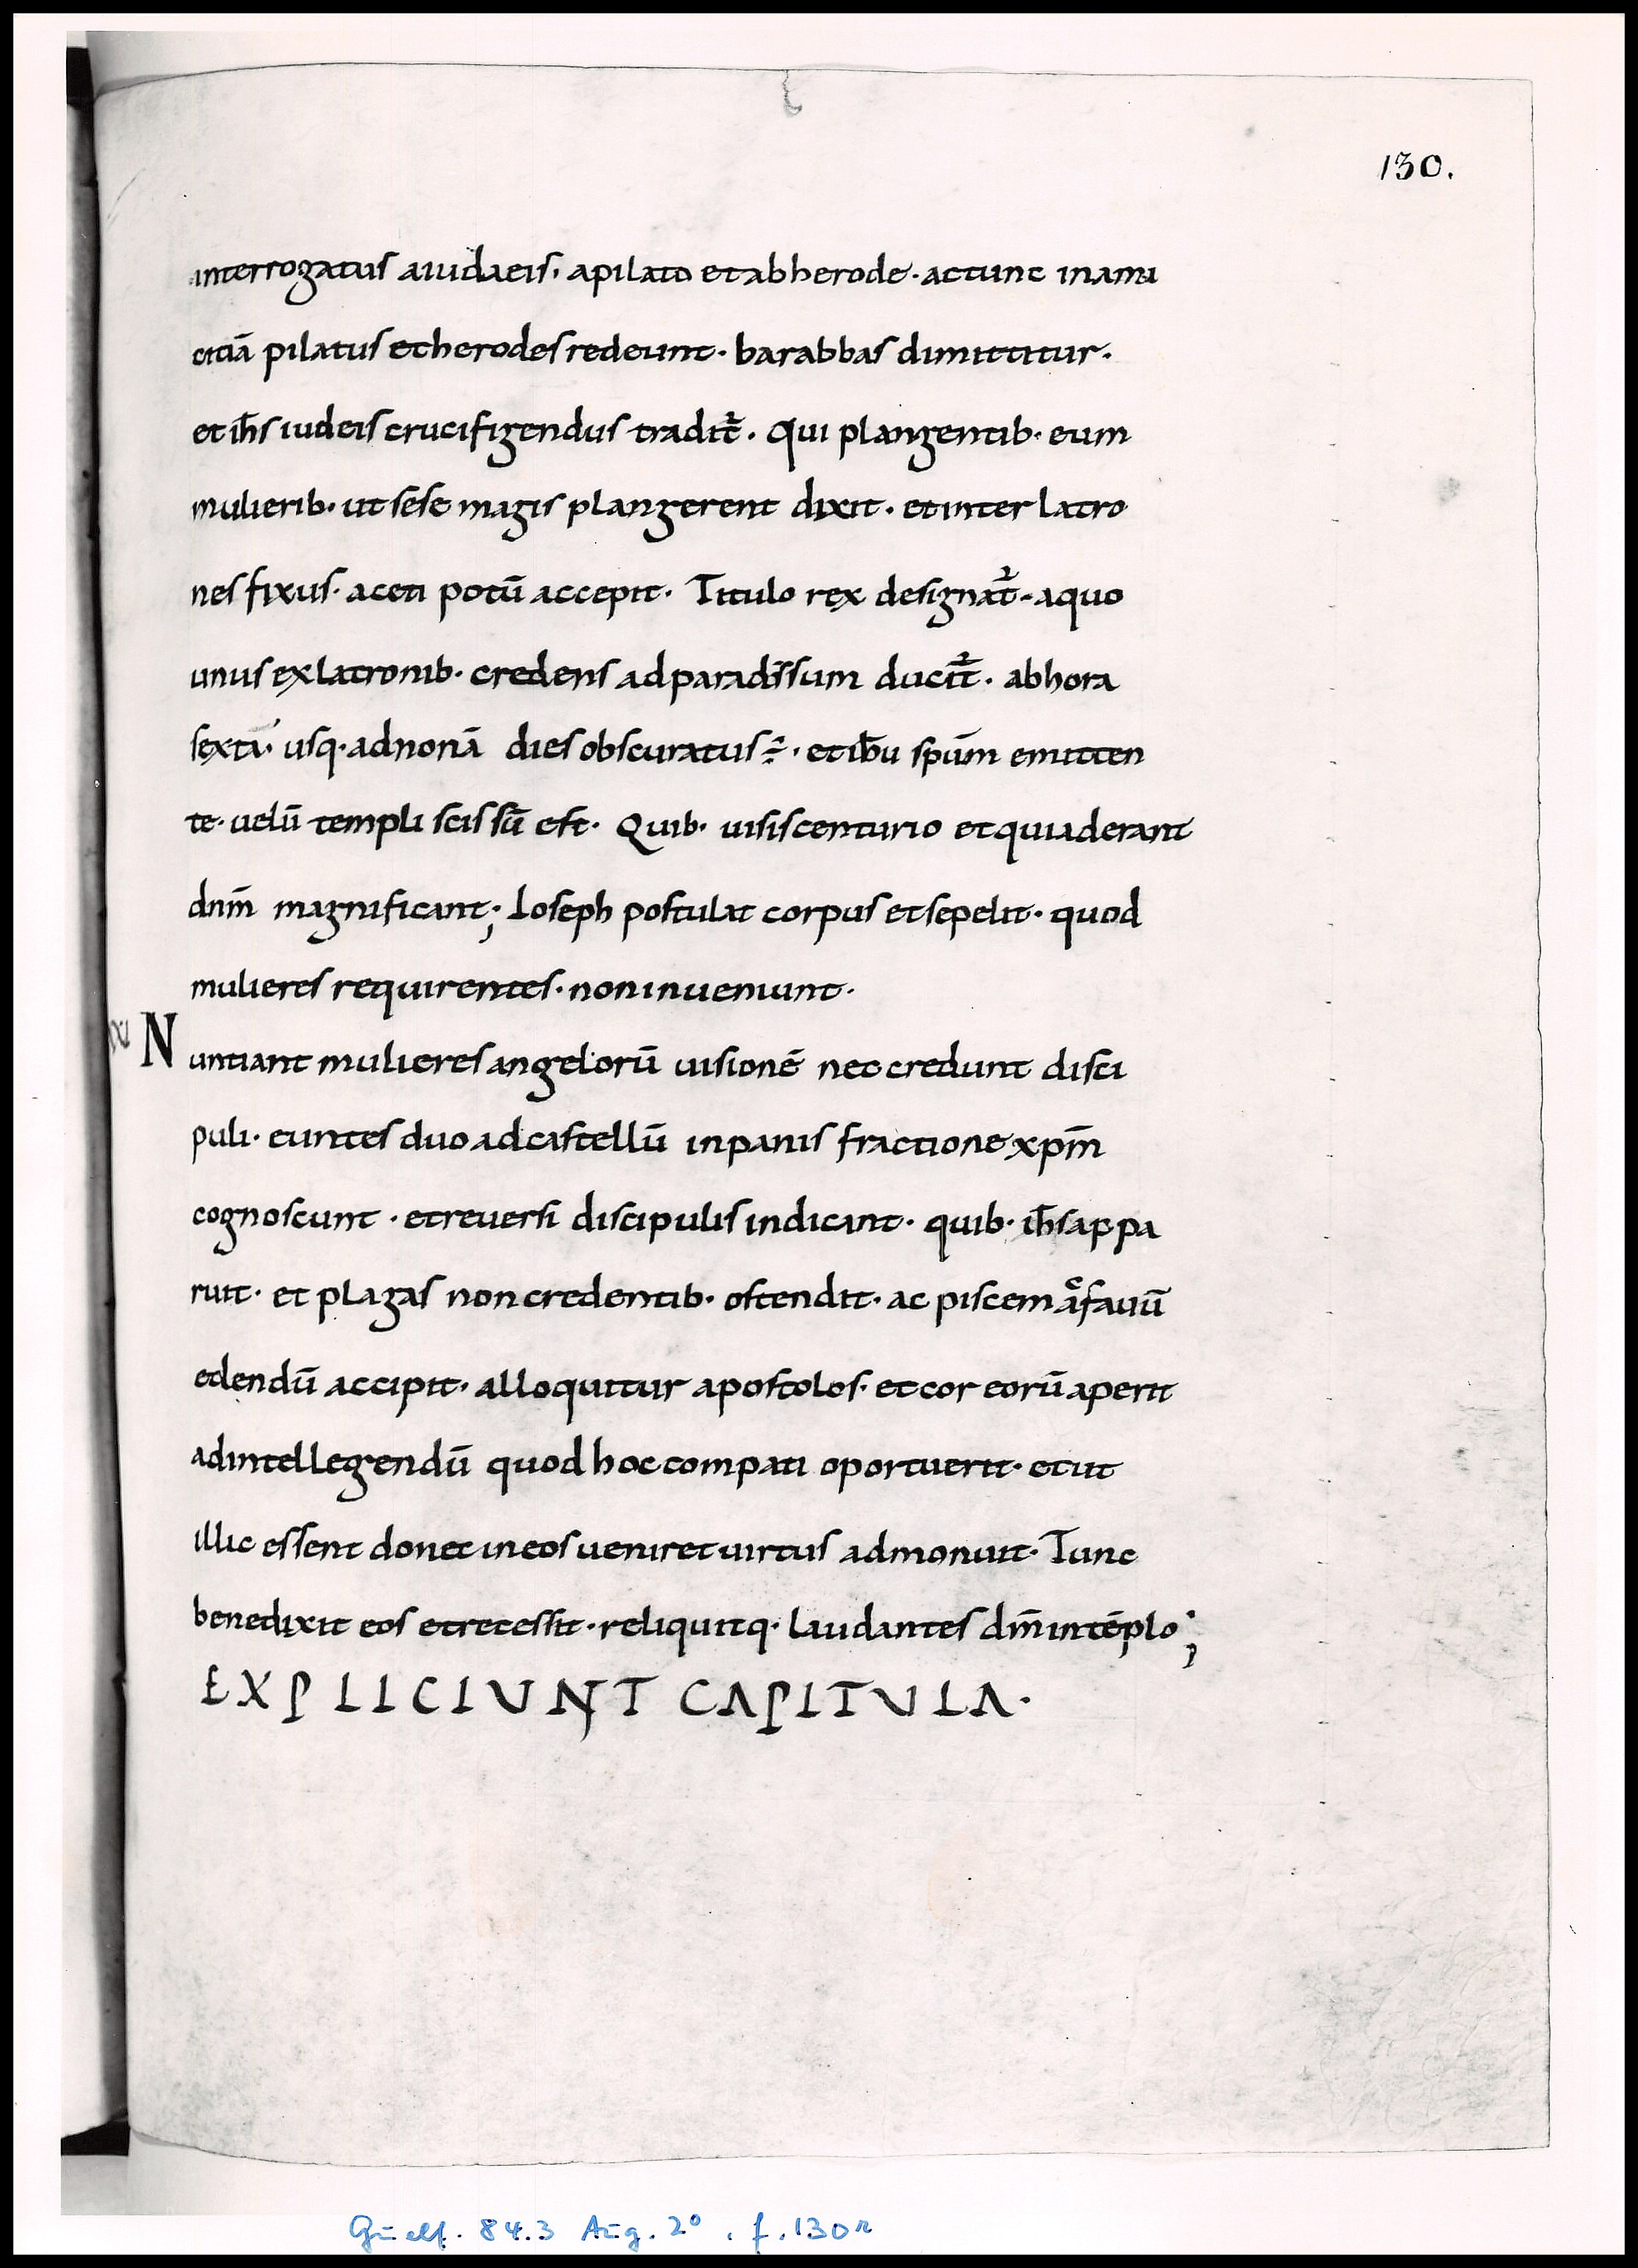 130.
interrogatus aiudaeis, apilato et ab herode · ac tunc in ami
citiā pilatus et herodes redeunt · barabbas dimittitur ·
et ih̄s iudeis crucifigendus tradit̄ · Qui plangentib· eum
mulierib· ut sese magis plangerent dixit · et inter latro
nes fixus · aceti potū accepit · Titulo rex designat̄ · aquo
unus ex latronib· credens ad paradissum ducit̄ · ab hora
sexta · usq· ad nonā dies obscuratus ÷ · et ih̄u sp̄um emitten
te · uelū templi scissū est · Quib· uisis centurio et qui aderant
dn̄m magnificant; Ioseph postulat corpus et sepelit · quod
mulieres requirentes · non inueniunt ·
Nuntiant mulieres angelorū uisionē nec credunt disci
puli · euntes duo ad castellū in panis fractione xp̄m
cognoscunt · et reuersi discipulis indicant · quib· ih̄s appa
ruit · et plagas non credentib· ostendit · ac piscem & fauū
edendū accipit · alloquitur apostolos · et cor eorū aperit
ad intellegendū quod hoc compati oportuerit · et ut
illic essent donec in eos ueniret uirtus admonuit · Tunc
benedixit eos et recessit · reliquitq· laudantes dm̄ in tēplo;
EXPLICIUNT CAPITULA ·
Guelf. 84.3 Aug. 2° . f. 130r